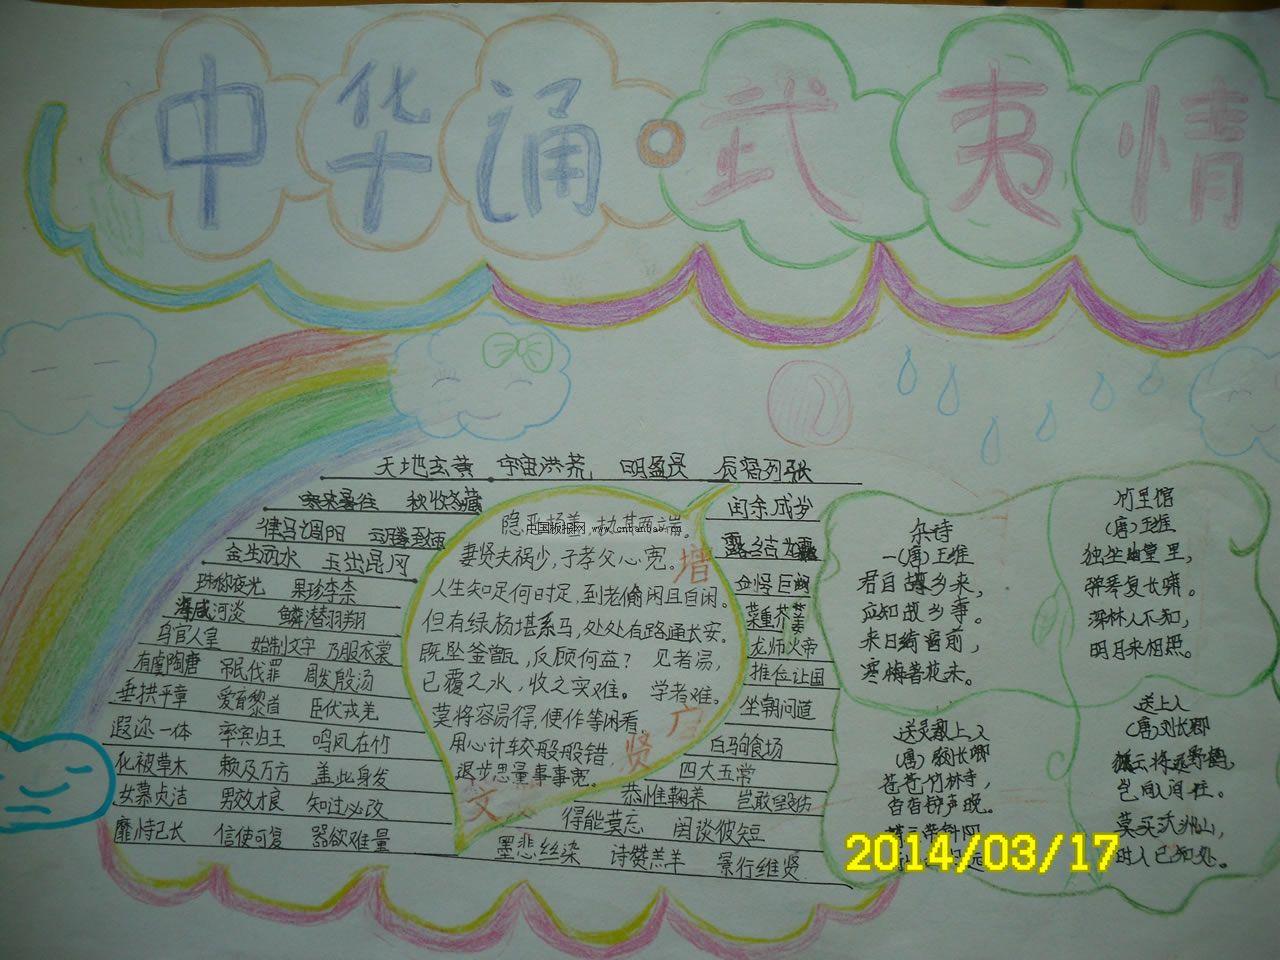 中华诵·武夷情
天地玄黄 宇宙洪荒 明盈昃 辰宿列张
寒来暑往 秋收冬藏
闰余成岁
律马调阳 云腾致雨
露结为霜
金生丽水 玉出昆冈
金怪巨阙
珠称夜光 果珍李柰
菜重芥姜
海咸河淡 鳞潜羽翔
龙师火帝
鸟官人皇 始制文字 乃服衣裳
推位让国
有虞陶唐 吊民伐罪 周发殷汤
坐朝问道
垂拱平章 爱育黎首 臣伏戎羌
遐迩一体 率宾归王 鸣凤在竹
白驹食场
化被草木 赖及万方 盖此身发
四大五常
恭惟鞠养 岂敢毁伤
女慕贞洁 男效才良 知过必改
得能莫忘 罔谈彼短
靡恃己长 信使可复 器欲难量
墨悲丝染 诗赞羔羊 景行维贤
隐恶扬善，执其两端。
妻贤夫祸少，子孝父心宽。
人生知足何时足，到老偷闲且自闲。
但有绿杨堪系马，处处有路通长安。
既坠釜甑，反顾何益？ 见者汤，
已覆之水，收之实难。 学者难。
莫将容易得，便作等闲看。
用心计较般般错，
退步思量事事宽。
增
广
贤
文
中国板报网 www.cnbanbao.cn
杂诗
一(唐)王维
君自故乡来，
应知故乡事。
来日绮窗前，
寒梅著花未。
竹里馆
(唐)王维
独坐幽篁里，
弹琴复长啸。
深林人不知，
明月来相照。
送灵澈上人
(唐)刘长卿
苍苍竹林寺，
杳杳钟声晚。
送上人
(唐)刘长卿
孤云将野鹤，
岂向人间住。
莫买沃洲山，
时人已知处。
2014/03/17